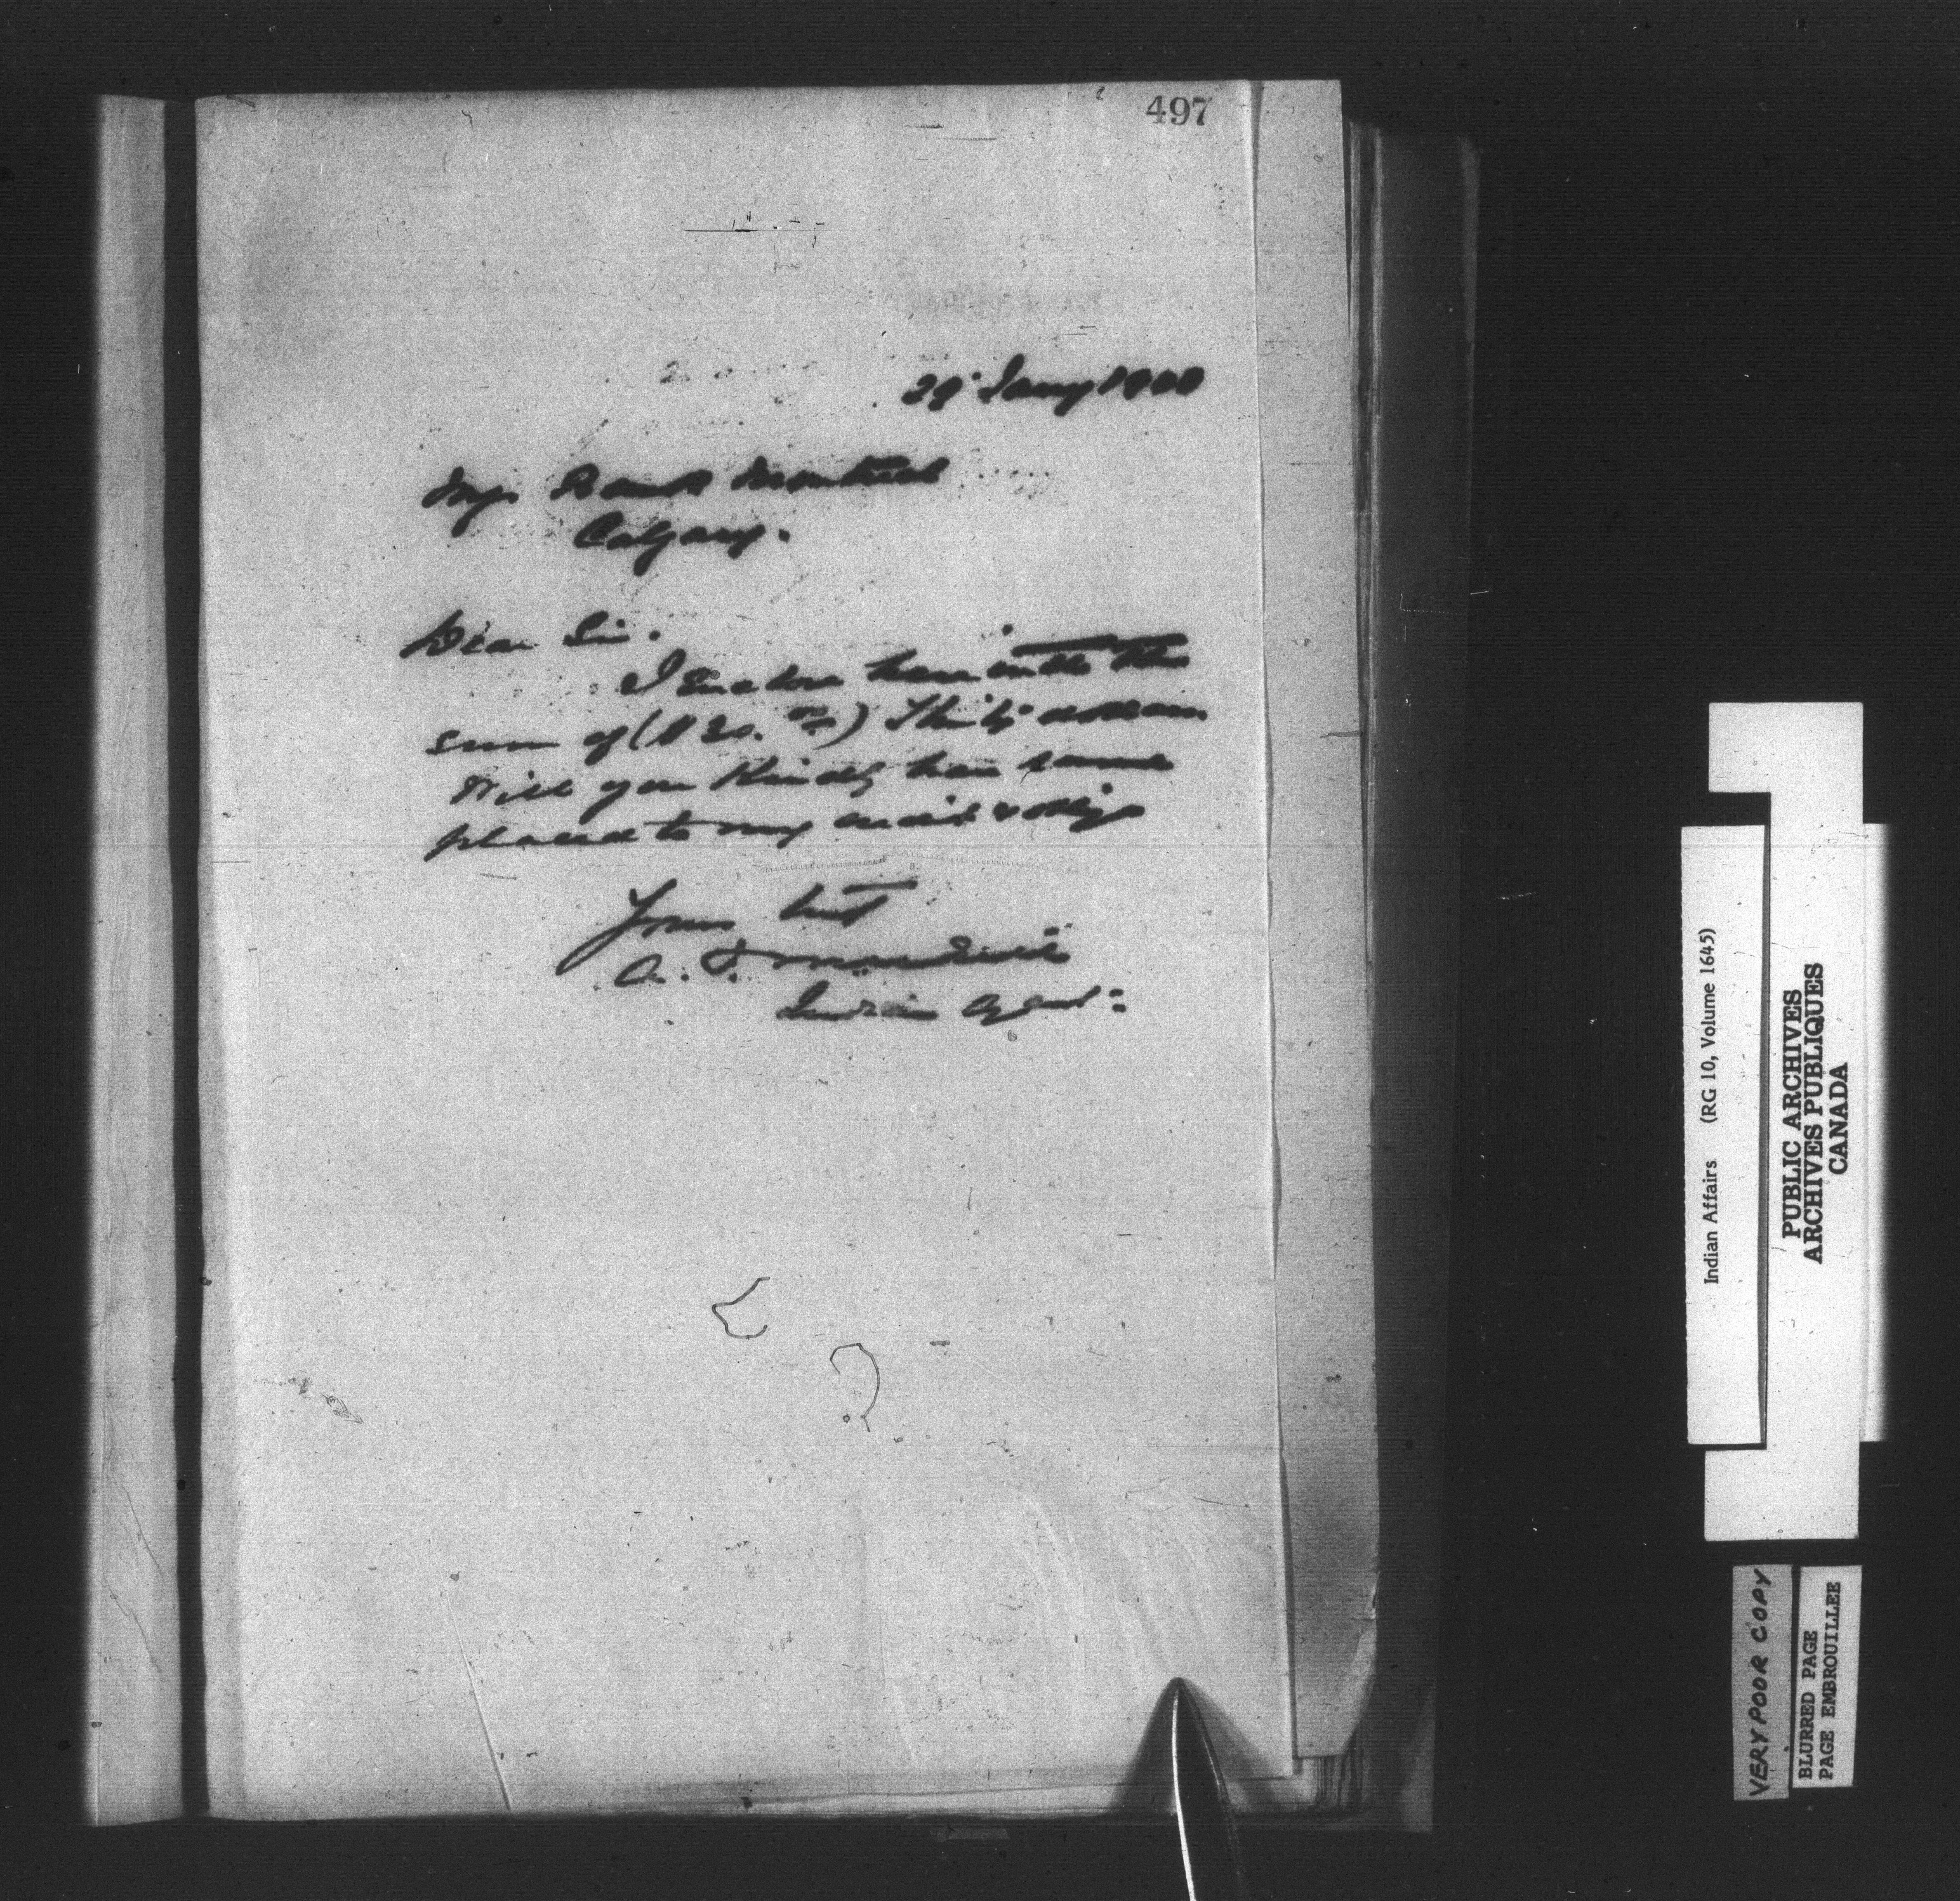 497
29 Jany 1900
Mgr Bank Montreal
Calgary.
Dear Sir.
I Enclose herewith the
sum of ($30. 00/xx) Thirty dollars
Will you Kindly have same
placed to my credit & oblige
Yours truly
Indian Agent
Indian Affairs (RG 10, Volume 1645)
PUBLIC ARCHIVES
ARCHIVES PUBLIQUES
CANADA
VERY POOR COPY
BLURRED PAGE
PAGE EMBROUILLEE